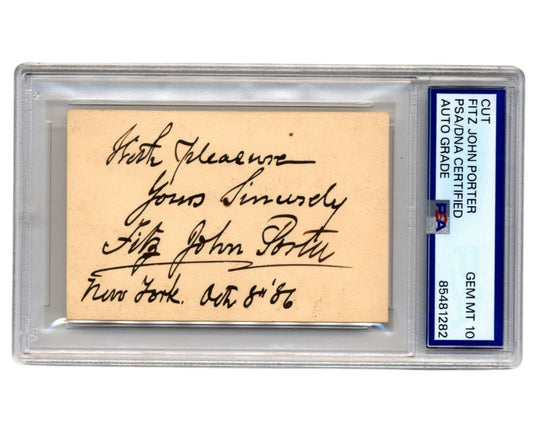 With pleasure
Yours Sincerely
Fitz John Porter
New York. Oct 8th '86
CUT
FITZ JOHN PORTER
PSA/DNA CERTIFIED
AUTO GRADE
PSA
GEM MT 10
85481282